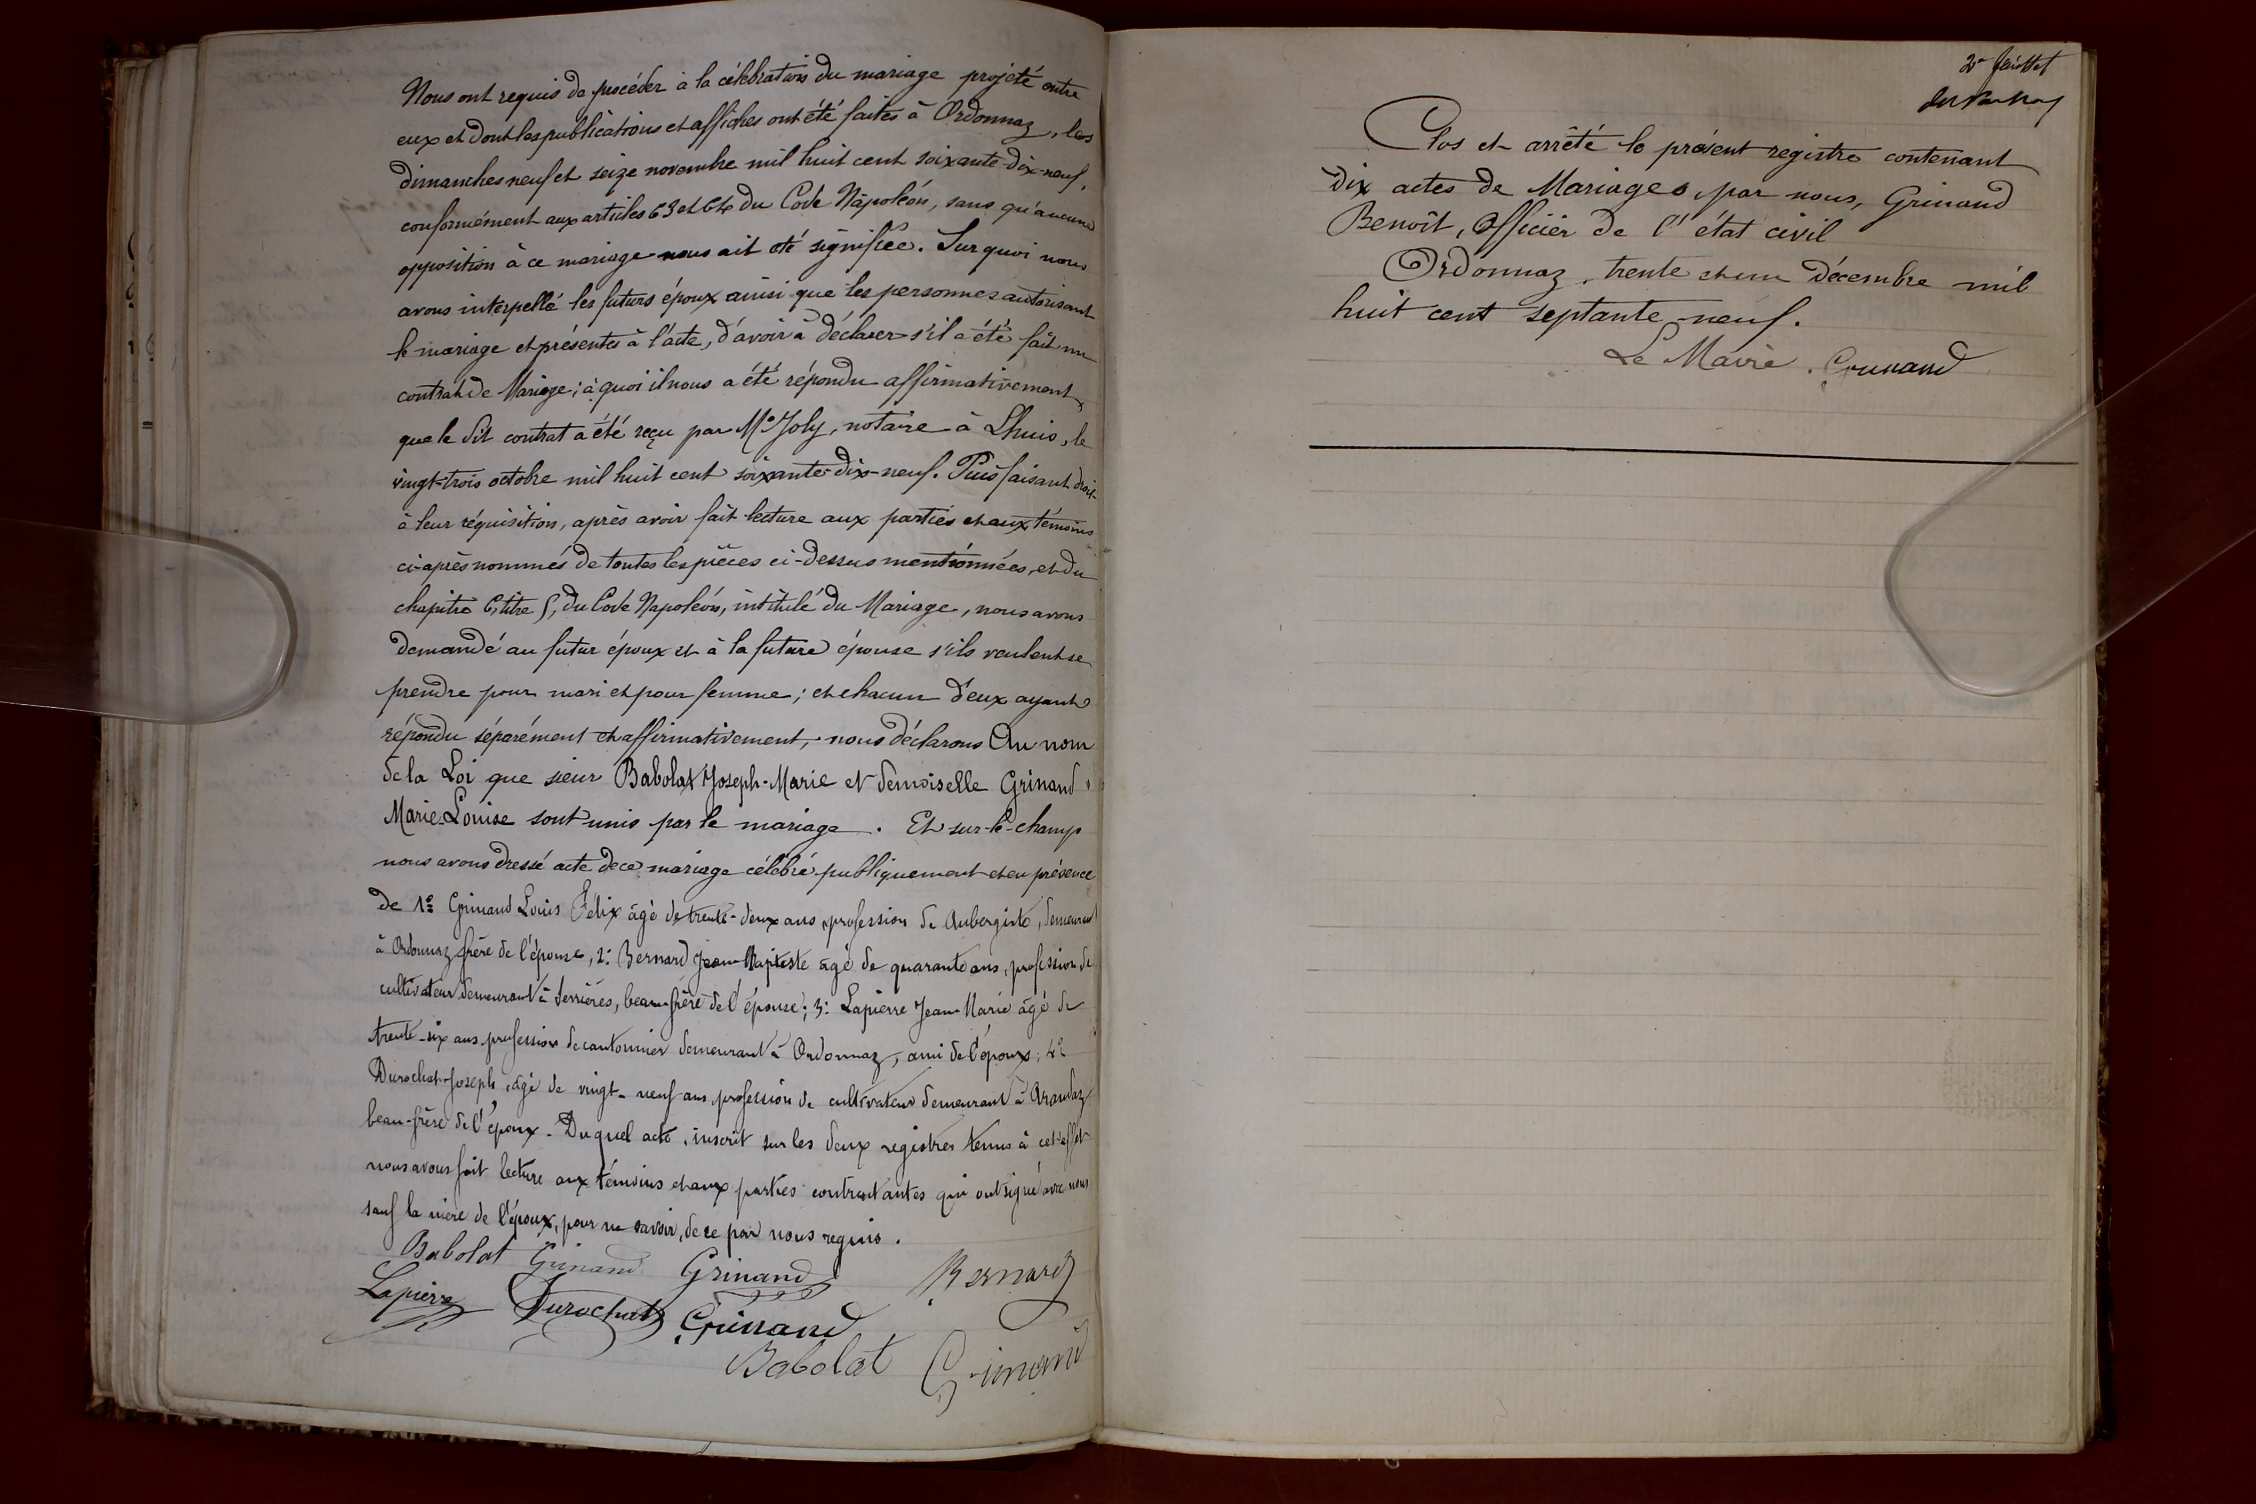 Nous ont requis de procéder à la célébration du mariage projeté entre
eux et dont les publications et affiches ont été faites à Ordonnaz, les
dimanches neuf et seize novembre mil huit cent soixante-dix-neuf,
conformément aux articles 63 et 64 du Code Napoléon, sans qu'aucune
opposition à ce mariage nous ait été signifiée. Sur quoi nous
avons interpellé les futurs époux ainsi que les personnes autorisant
le mariage et présentes à l'acte, d'avoir à déclarer s'il a été fait un
contrat de Mariage; à quoi il nous a été répondu affirmativement
que le dit contrat a été reçu par Me Joly, notaire à Lhuis, le
vingt-trois octobre mil huit cent soixante-dix-neuf. Puis faisant droit
à leur réquisition, après avoir fait lecture aux parties et aux témoins
ci-après nommés de toutes les pièces ci-dessus mentionnées, et du
chapitre 6, titre 5, du Code Napoléon, intitulé du Mariage, nous avons
demandé au futur époux et à la future épouse s'ils veulent se
prendre pour mari et pour femme; et chacun d'eux ayant
répondu séparément et affirmativement, nous déclarons Au nom
de la Loi que sieur Babolat Joseph-Marie et demoiselle Grinand
Marie-Louise sont unis par le mariage. Et sur-le-champ
nous avons dressé acte de ce mariage célébré publiquement et en présence
de 1º Grinand Louis Félix âgé de trente-deux ans, profession de Aubergiste, demeurant
à Ordonnaz frère de l'épouse, 2º Bernard Jean-Baptiste âgé de quarante ans, profession de
cultivateur demeurant à Serrières, beau-frère de l'épouse; 3º Lapierre Jean Marie âgé de
trente-six ans profession de cantonnier demeurant à Ordonnaz, ami de l'époux; 4º
Durochat Joseph, âgé de vingt-neuf ans, profession de cultivateur demeurant à Arandaz
beau-frère de l'époux. Duquel acte, inscrit sur les deux registres tenus à cet effet
nous avons fait lecture aux témoins et aux parties contractantes qui ont signé avec nous
sauf la mère de l'époux, pour ne savoir, de ce par nous requis.
Babolat Grinand Grinand Bernard
Lapierre Durochat Grinand
Babolat Grinand
2e feuillet
Clos et arrêté le présent registre contenant
dix actes de Mariages, par nous, Grinand
Benoît, Officier de l'état civil
Ordonnaz, trente et un Décembre mil
huit cent septante-neuf.
Le Maire. Grinand